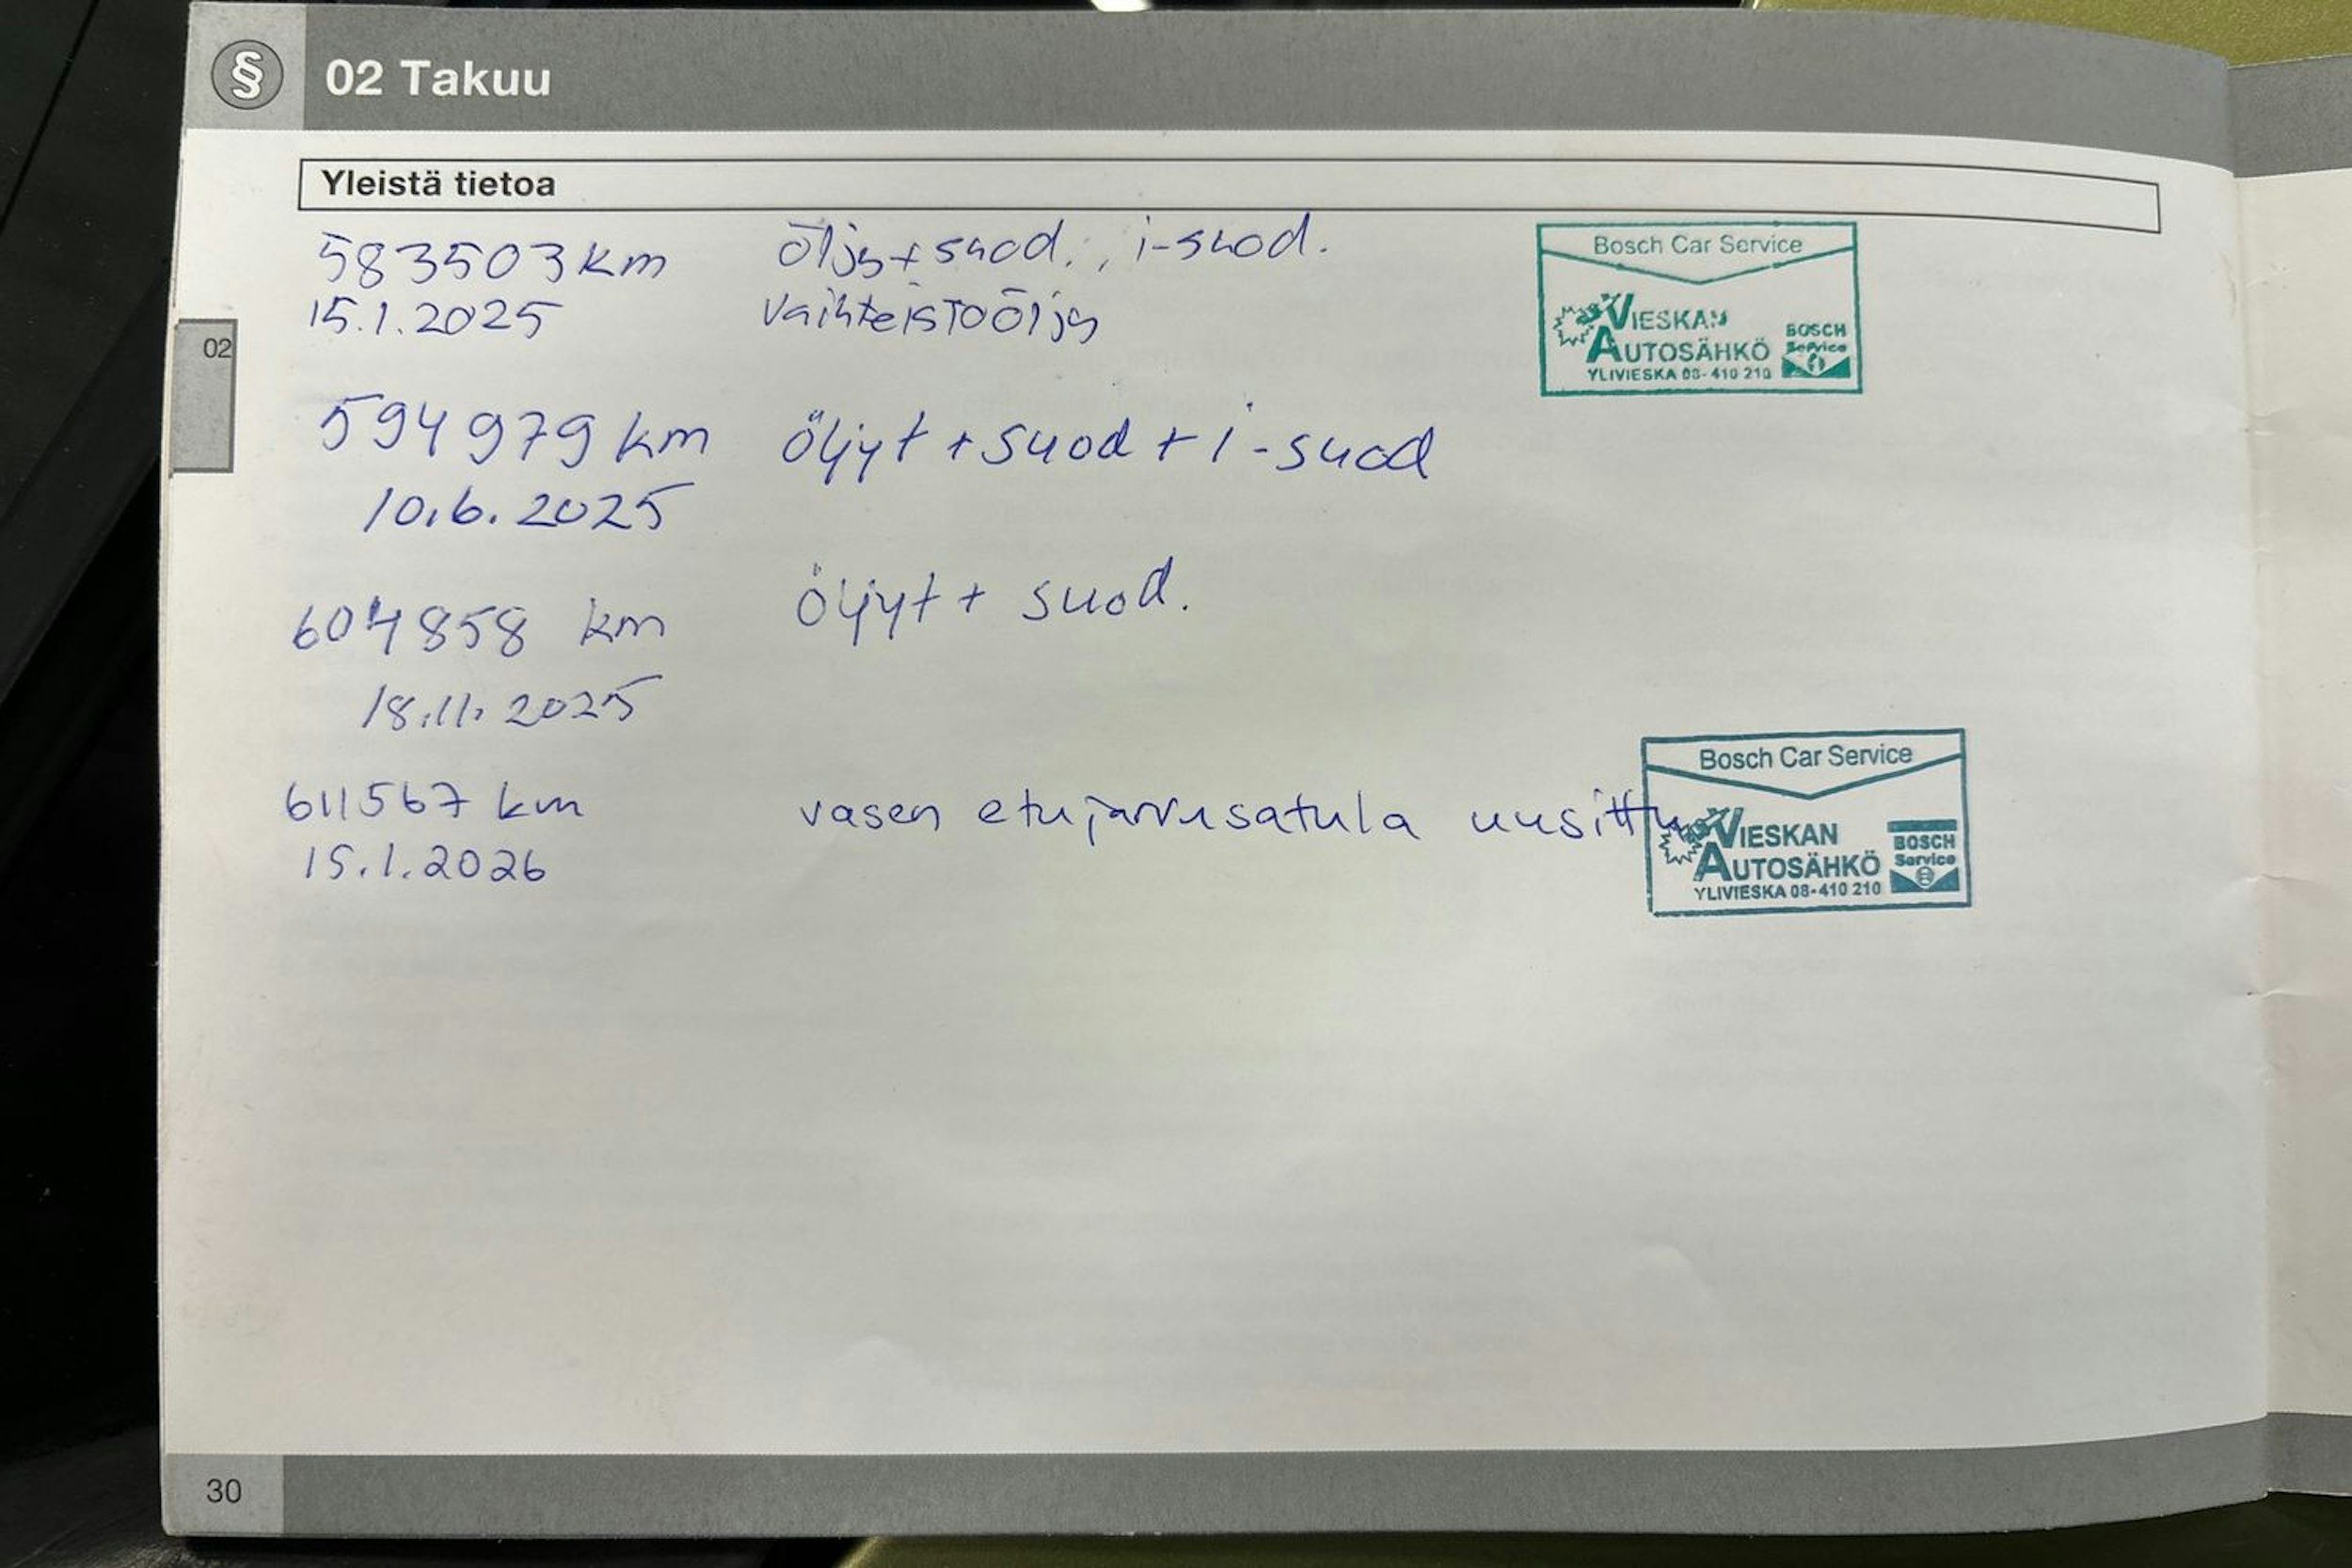 § 02 Takuu
Yleistä tietoa
583503 km öljy + suod., i-suod.
15.1.2025 vaihteistoöljy
Bosch Car Service
VIESKAN
AUTOSÄHKÖ
YLIVIESKA 08-410 210
BOSCH
Service
02
594979 km öljyt + suod + i-suod
10.6.2025
604858 km öljyt + suod.
18.11.2025
611567 km vasen etujarrusatula uusittu
15.1.2026
Bosch Car Service
VIESKAN
AUTOSÄHKÖ
YLIVIESKA 08-410 210
BOSCH
Service
30